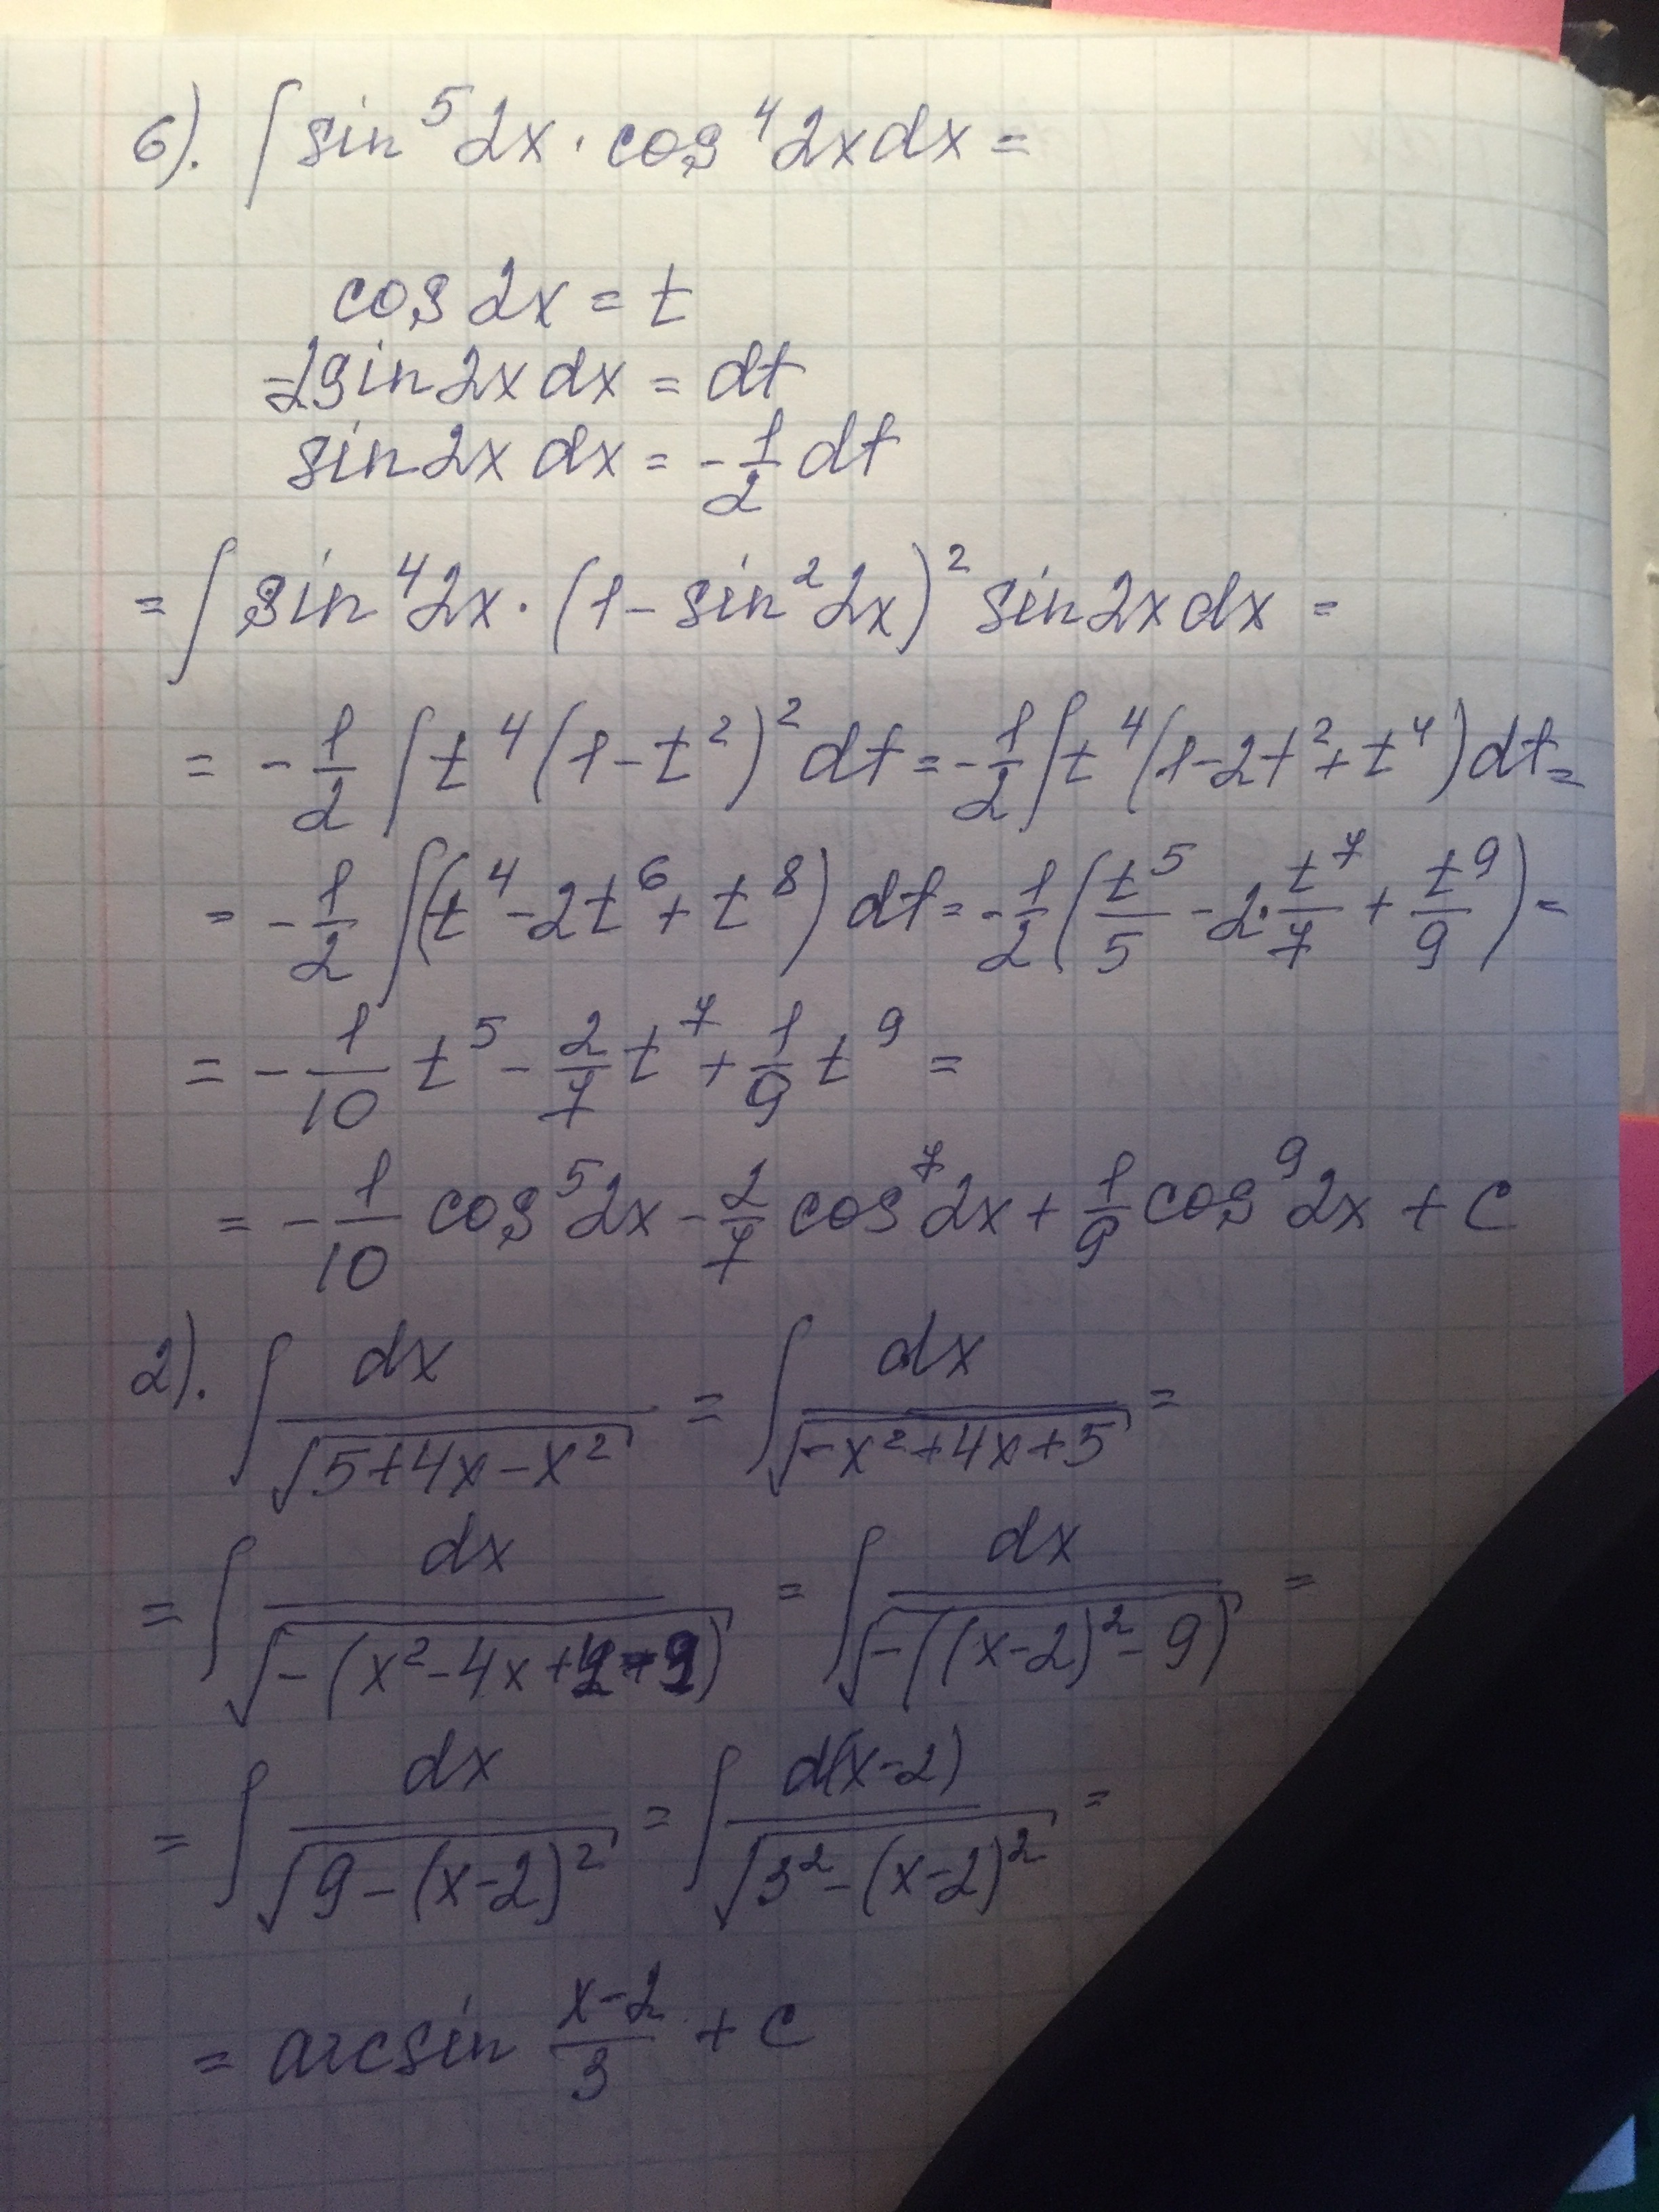 6). ∫ sin⁵2x · cos⁴2x dx =
cos 2x = t
-2sin2x dx = dt
sin2x dx = -1/2 dt
= ∫ sin⁴2x · (1 - sin²2x)² sin2x dx =
= -1/2 ∫ t⁴(1 - t²)² dt = -1/2 ∫ t⁴(1 - 2t² + t⁴) dt =
= -1/2 ∫ (t⁴ - 2t⁶ + t⁸) dt = -1/2 (t⁵/5 - 2·t⁷/7 + t⁹/9) =
= -1/10 t⁵ - 2/7 t⁷ + 1/9 t⁹ =
= -1/10 cos⁵2x - 2/7 cos⁷2x + 1/9 cos⁹2x + c
2). ∫ dx/√(5+4x-x²) = ∫ dx/√(-x²+4x+5) =
= ∫ dx/√(-(x²-4x+4-9)) = ∫ dx/√(-((x-2)²-9)) =
= ∫ dx/√(9-(x-2)²) = ∫ d(x-2)/√(3²-(x-2)²) =
= arcsin (x-2)/3 + c